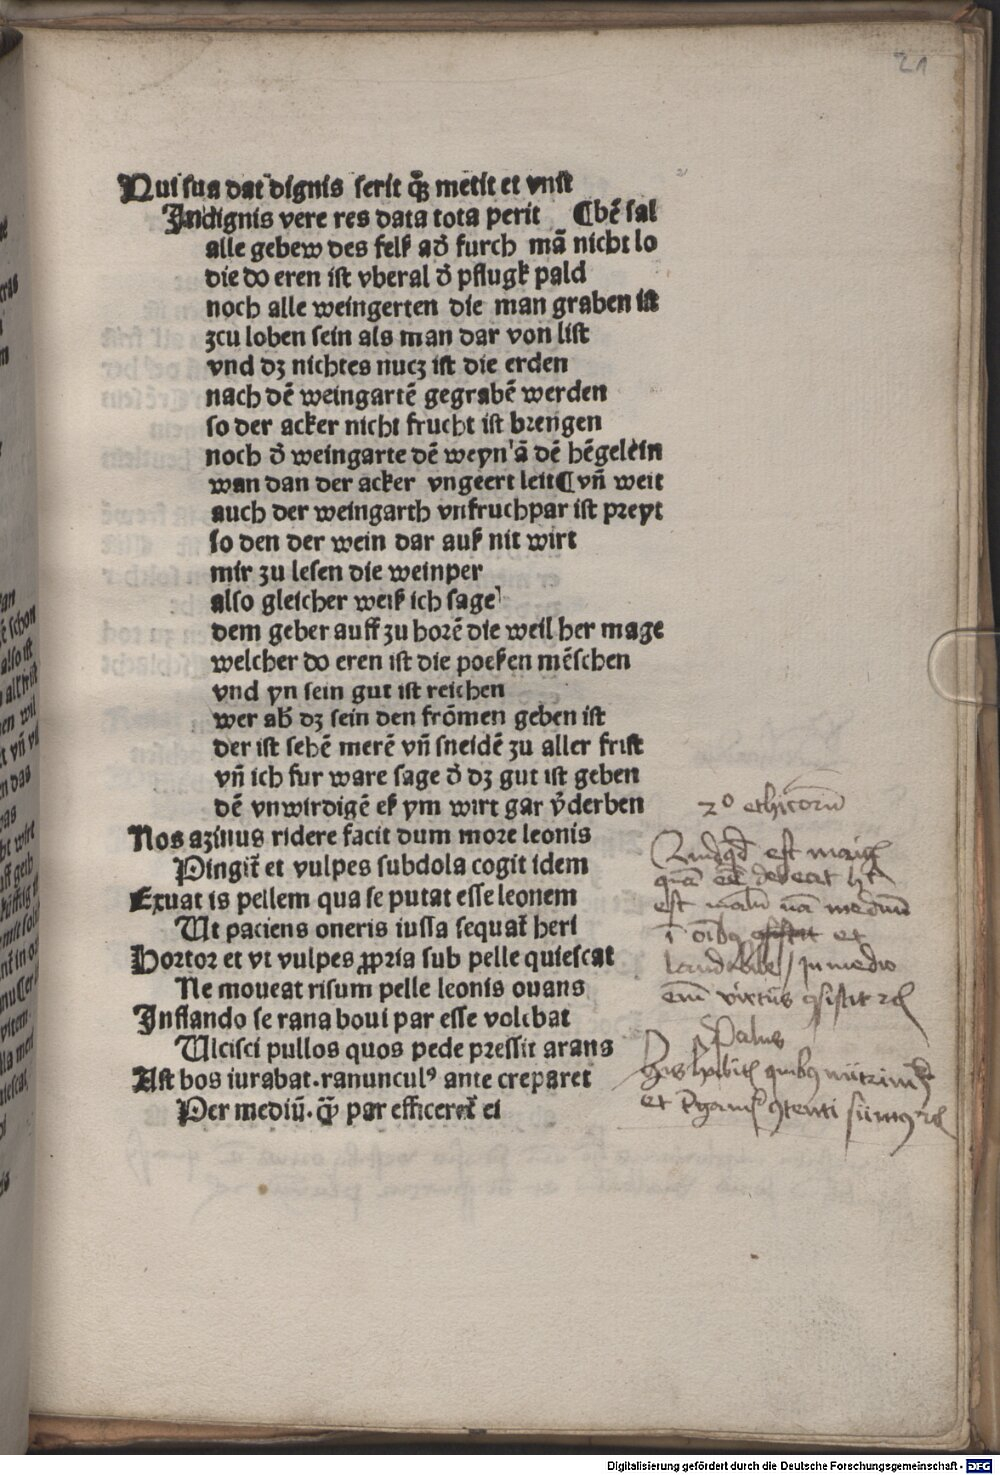 21
Qui sua dat dignis serit qꝫ metit et vnit
Indignis vere res data tota perit ¶bē sal
alle gebew des felß ad̄ furch mā nicht lo
die do eren ist vberal d̄ pflugk pald
noch alle weingerten die man graben ist
zcu loben sein als man dar von list
vnd dz nichtes nucz ist die erden
nach dē weingartē gegrabē werden
so der acker nicht frucht ist brengen
noch d̄ weingarte dē weyn ā dē hēgelein
wan dan der acker vngeert leit¶vn̄ weit
auch der weingarth vnfruchpar ist preyt
so den der wein dar auß nit wirt
mir zu lesen die weinper
also gleicher weiß ich sage
dem geber auff zu horē die weil her mage
welcher do eren ist die poeßen mēschen
vnd yn sein gut ist reichen
wer ab̄ dz sein den frōmen geben ist
der ist sehē merē vn̄ sneidē zu aller frist
vn̄ ich fur ware sage d̄ dz gut ist geben
dē vnwirdigē eß ym wirt gar v̄derben
Nos azinus ridere facit dum more leonis
Pingit᷑ et vulpes subdola cogit idem
Exuat is pellem qua se putat esse leonem
Ut paciens oneris iussa sequat᷑ heri
Hortor et vt vulpes ꝓpria sub pelle quiescat
Ne moueat risum pelle leonis ouans
Inflando se rana boui par esse volebat
Ulcisci pullos quos pede pressit arans
Ast bos iurabat.ranuncul⁹ ante creparet
Per mediū.q̄ꝫ par efficeret᷑ ei
2⁰ ethicorū
est
debeat
est malū medium
et
laudabile / in medio
em̄ virtus ꝯsistit
Palus
et
Digitalisierung gefördert durch die Deutsche Forschungsgemeinschaft - DFG